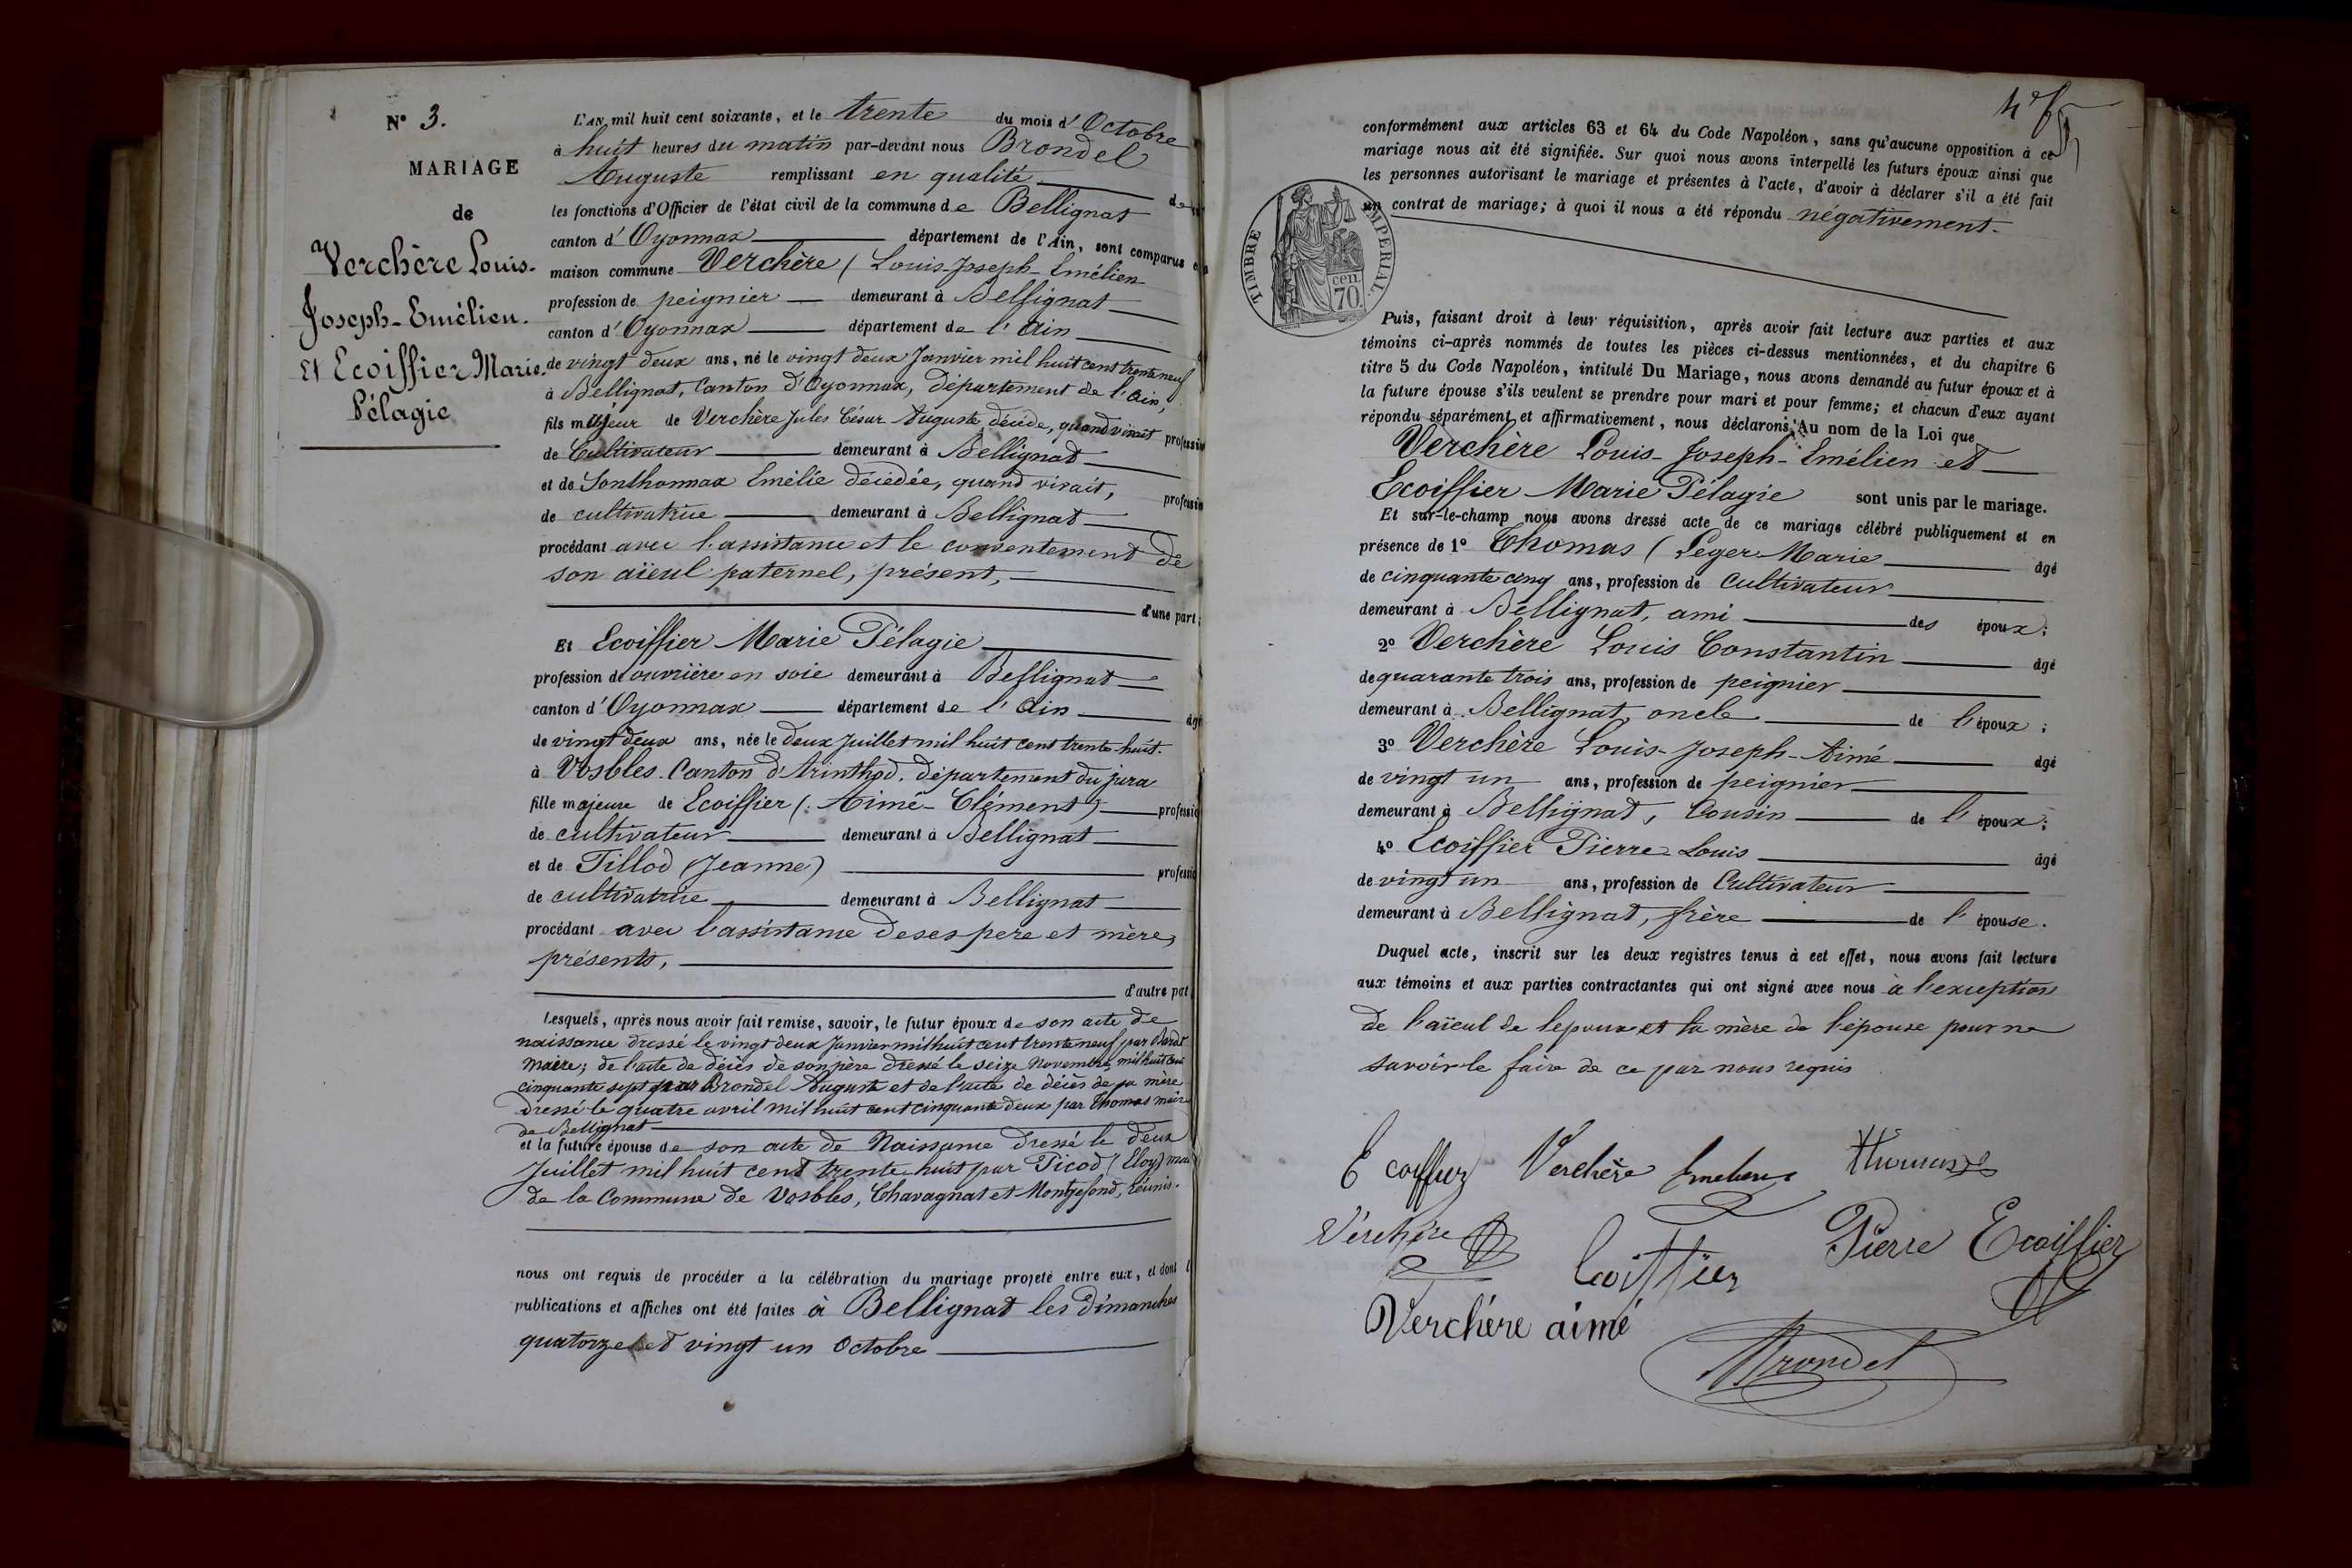 N° 3.
MARIAGE
de
Verchère Louis-
Joseph-Emélien.
Et Ecoiffier Marie.
Pélagie
L'AN mil huit cent soixante, et le trente du mois d'Octobre
à huit heures du matin par-devant nous Brondel
Auguste remplissant en qualité de
les fonctions d'Officier de l'état civil de la commune de Bellignat
canton d'Oyonnax département de l'Ain, sont comparus
maison commune Verchère (Louis-Joseph-Emélien
profession de peignier demeurant à Bellignat
canton d'Oyonnax département de l'Ain
de vingt deux ans, né le vingt deux Janvier mil huit cent trente neuf
à Bellignat, Canton d'Oyonnax, département de l'Ain,
fils majeur de Verchère Jules César Auguste décédé, quand vivait profession
de Cultivateur demeurant à Bellignat
et de Sonthonnax Emélie décédée, quand vivait, profession
de cultivatrice demeurant à Bellignat
procédant avec l'assistance et le consentement de
son aïeul paternel, présent,
d'une part;
Et Ecoiffier Marie Pélagie
profession de ouvrière en soie demeurant à Bellignat
canton d'Oyonnax département de l'Ain âgé
de vingt deux ans, née le deux Juillet mil huit cent trente-huit
à Vosbles. Canton d'Arinthod. département du jura
fille majeure de Ecoiffier (Aimé-Clément) profession
de cultivateur demeurant à Bellignat
et de Tillod (Jeanne) profession
de cultivatrice demeurant à Bellignat
procédant avec l'assistance de ses pere et mère,
présents,
d'autre part
Lesquels, après nous avoir fait remise, savoir, le futur époux de son acte de
naissance dressé le vingt deux Janvier mil huit cent trente neuf par
Maire; de l'acte de décès de son père dressé le seize Novembre mil huit cent
cinquante sept par Brondel Auguste et de l'acte de décès de sa mère
dressé le quatre avril mil huit cent cinquante deux par Thomas maire
de Bellignat
et la future épouse de son acte de Naissance dressé le deux
Juillet mil huit cent trente huit par Picod (Eloy) maire
de la Commune de Vosbles, Chavagnat et Montjefond, réunis.
nous ont requis de procéder à la célébration du mariage projeté entre eux, et dont l
publications et affiches ont été faites à Bellignat les dimanches
quatorze et vingt un Octobre
conformément aux articles 63 et 64 du Code Napoléon, sans qu'aucune opposition à ce
mariage nous ait été signifiée. Sur quoi nous avons interpellé les futurs époux ainsi que
les personnes autorisant le mariage et présentes à l'acte, d'avoir à déclarer s'il a été fait
un contrat de mariage; à quoi il nous a été répondu négativement.
TIMBRE IMPERIAL
70 cen.
Puis, faisant droit à leur réquisition, après avoir fait lecture aux parties et aux
témoins ci-après nommés de toutes les pièces ci-dessus mentionnées, et du chapitre 6
titre 5 du Code Napoléon, intitulé Du Mariage, nous avons demandé au futur époux et à
la future épouse s'ils veulent se prendre pour mari et pour femme; et chacun d'eux ayant
répondu séparément et affirmativement, nous déclarons, Au nom de la Loi que
Verchère Louis-Joseph-Emélien et
Ecoiffier Marie Pélagie sont unis par le mariage.
Et sur-le-champ nous avons dressé acte de ce mariage célébré publiquement et en
présence de 1° Thomas (Léger Marie âgé
de cinquante cinq ans, profession de Cultivateur
demeurant à Bellignat, ami des époux;
2° Verchère Louis Constantin âgé
de quarante trois ans, profession de peignier
demeurant à Bellignat, oncle de l'époux;
3° Verchère Louis-Joseph-Aimé âgé
de vingt un ans, profession de peignier
demeurant à Bellignat, Cousin de l'époux;
4° Ecoiffier Pierre Louis âgé
de vingt un ans, profession de Cultivateur
demeurant à Bellignat, frère de l'épouse.
Duquel acte, inscrit sur les deux registres tenus à cet effet, nous avons fait lecture
aux témoins et aux parties contractantes qui ont signé avec nous à l'exception
de l'aïeul de l'epoux et la mère de l'épouse pour ne
savoir le faire de ce par nous requis
Ecoiffier Verchère Emelien Thomas
Verchère Pierre Ecoiffier
Ecoiffier
Verchére aimé
Brondel